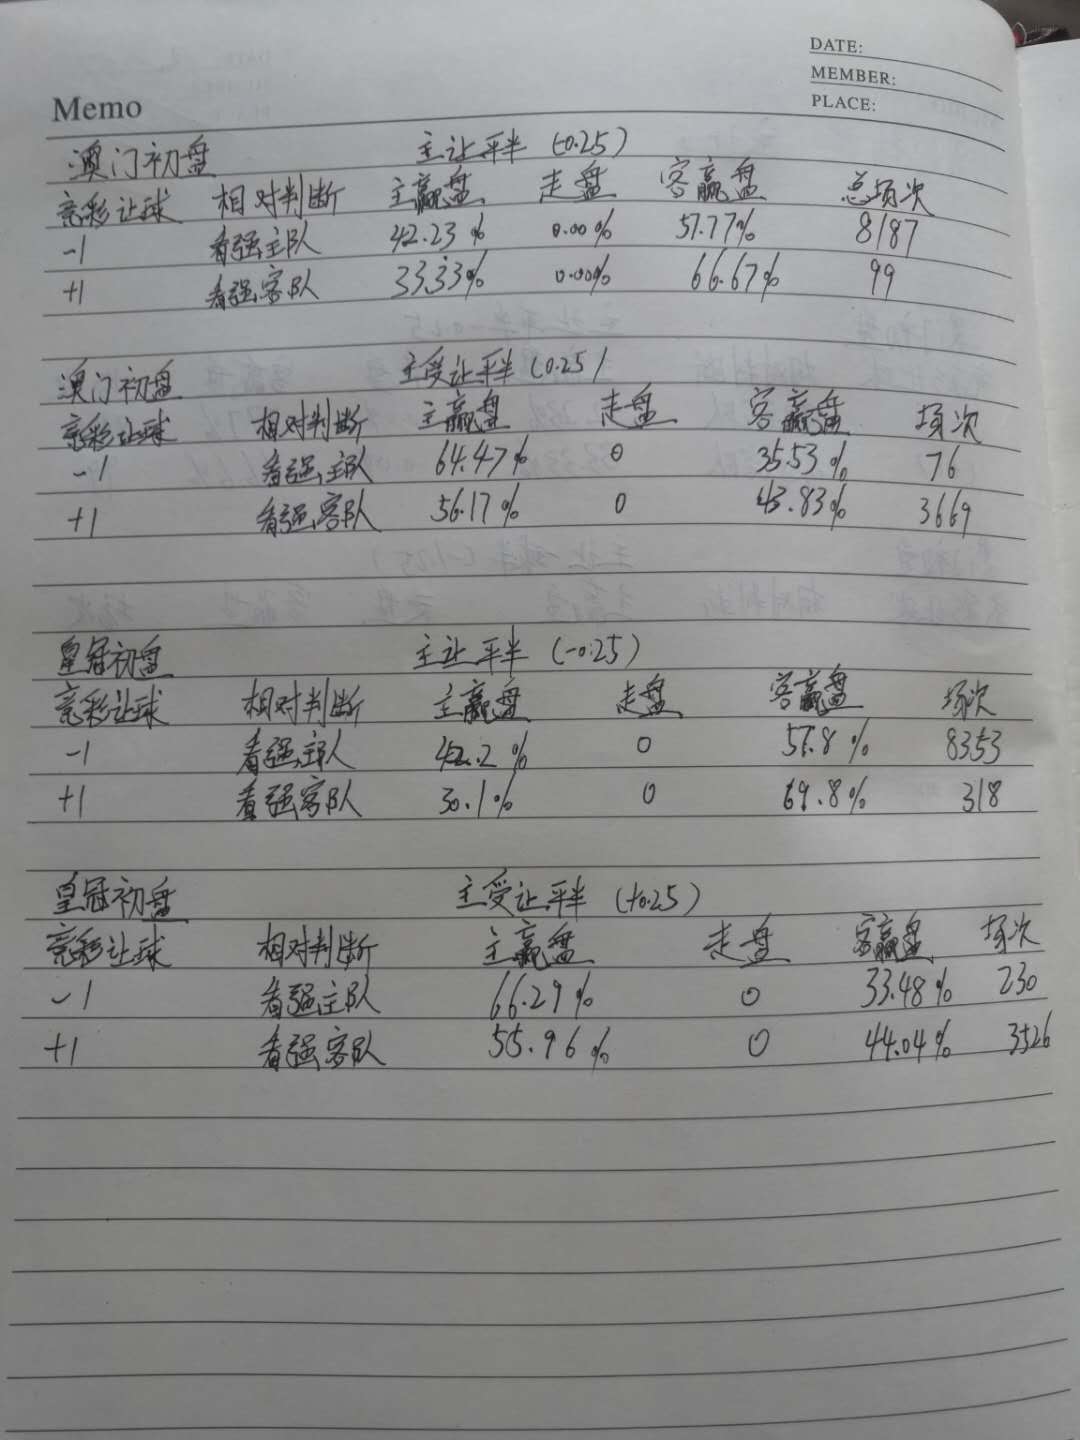 DATE:
MEMBER:
Memo
PLACE:
澳门初盘 主让平半 (-0.25)
竞彩让球 相对判断 主赢盘 走盘 客赢盘 总场次
-1 看强主队 42.23% 0.00% 57.77% 8187
+1 看强客队 33.33% 0.00% 66.67% 99
澳门初盘 主受让平半 (0.25)
竞彩让球 相对判断 主赢盘 走盘 客赢盘 场次
-1 看强主队 64.47% 0 35.53% 76
+1 看强客队 56.17% 0 43.83% 3669
皇冠初盘 主让平半 (-0.25)
竞彩让球 相对判断 主赢盘 走盘 客赢盘 场次
-1 看强主队 42.2% 0 57.8% 8353
+1 看强客队 30.1% 0 69.8% 318
皇冠初盘 主受让平半 (+0.25)
竞彩让球 相对判断 主赢盘 走盘 客赢盘 场次
-1 看强主队 66.29% 0 33.48% 230
+1 看强客队 55.96% 0 44.04% 3526